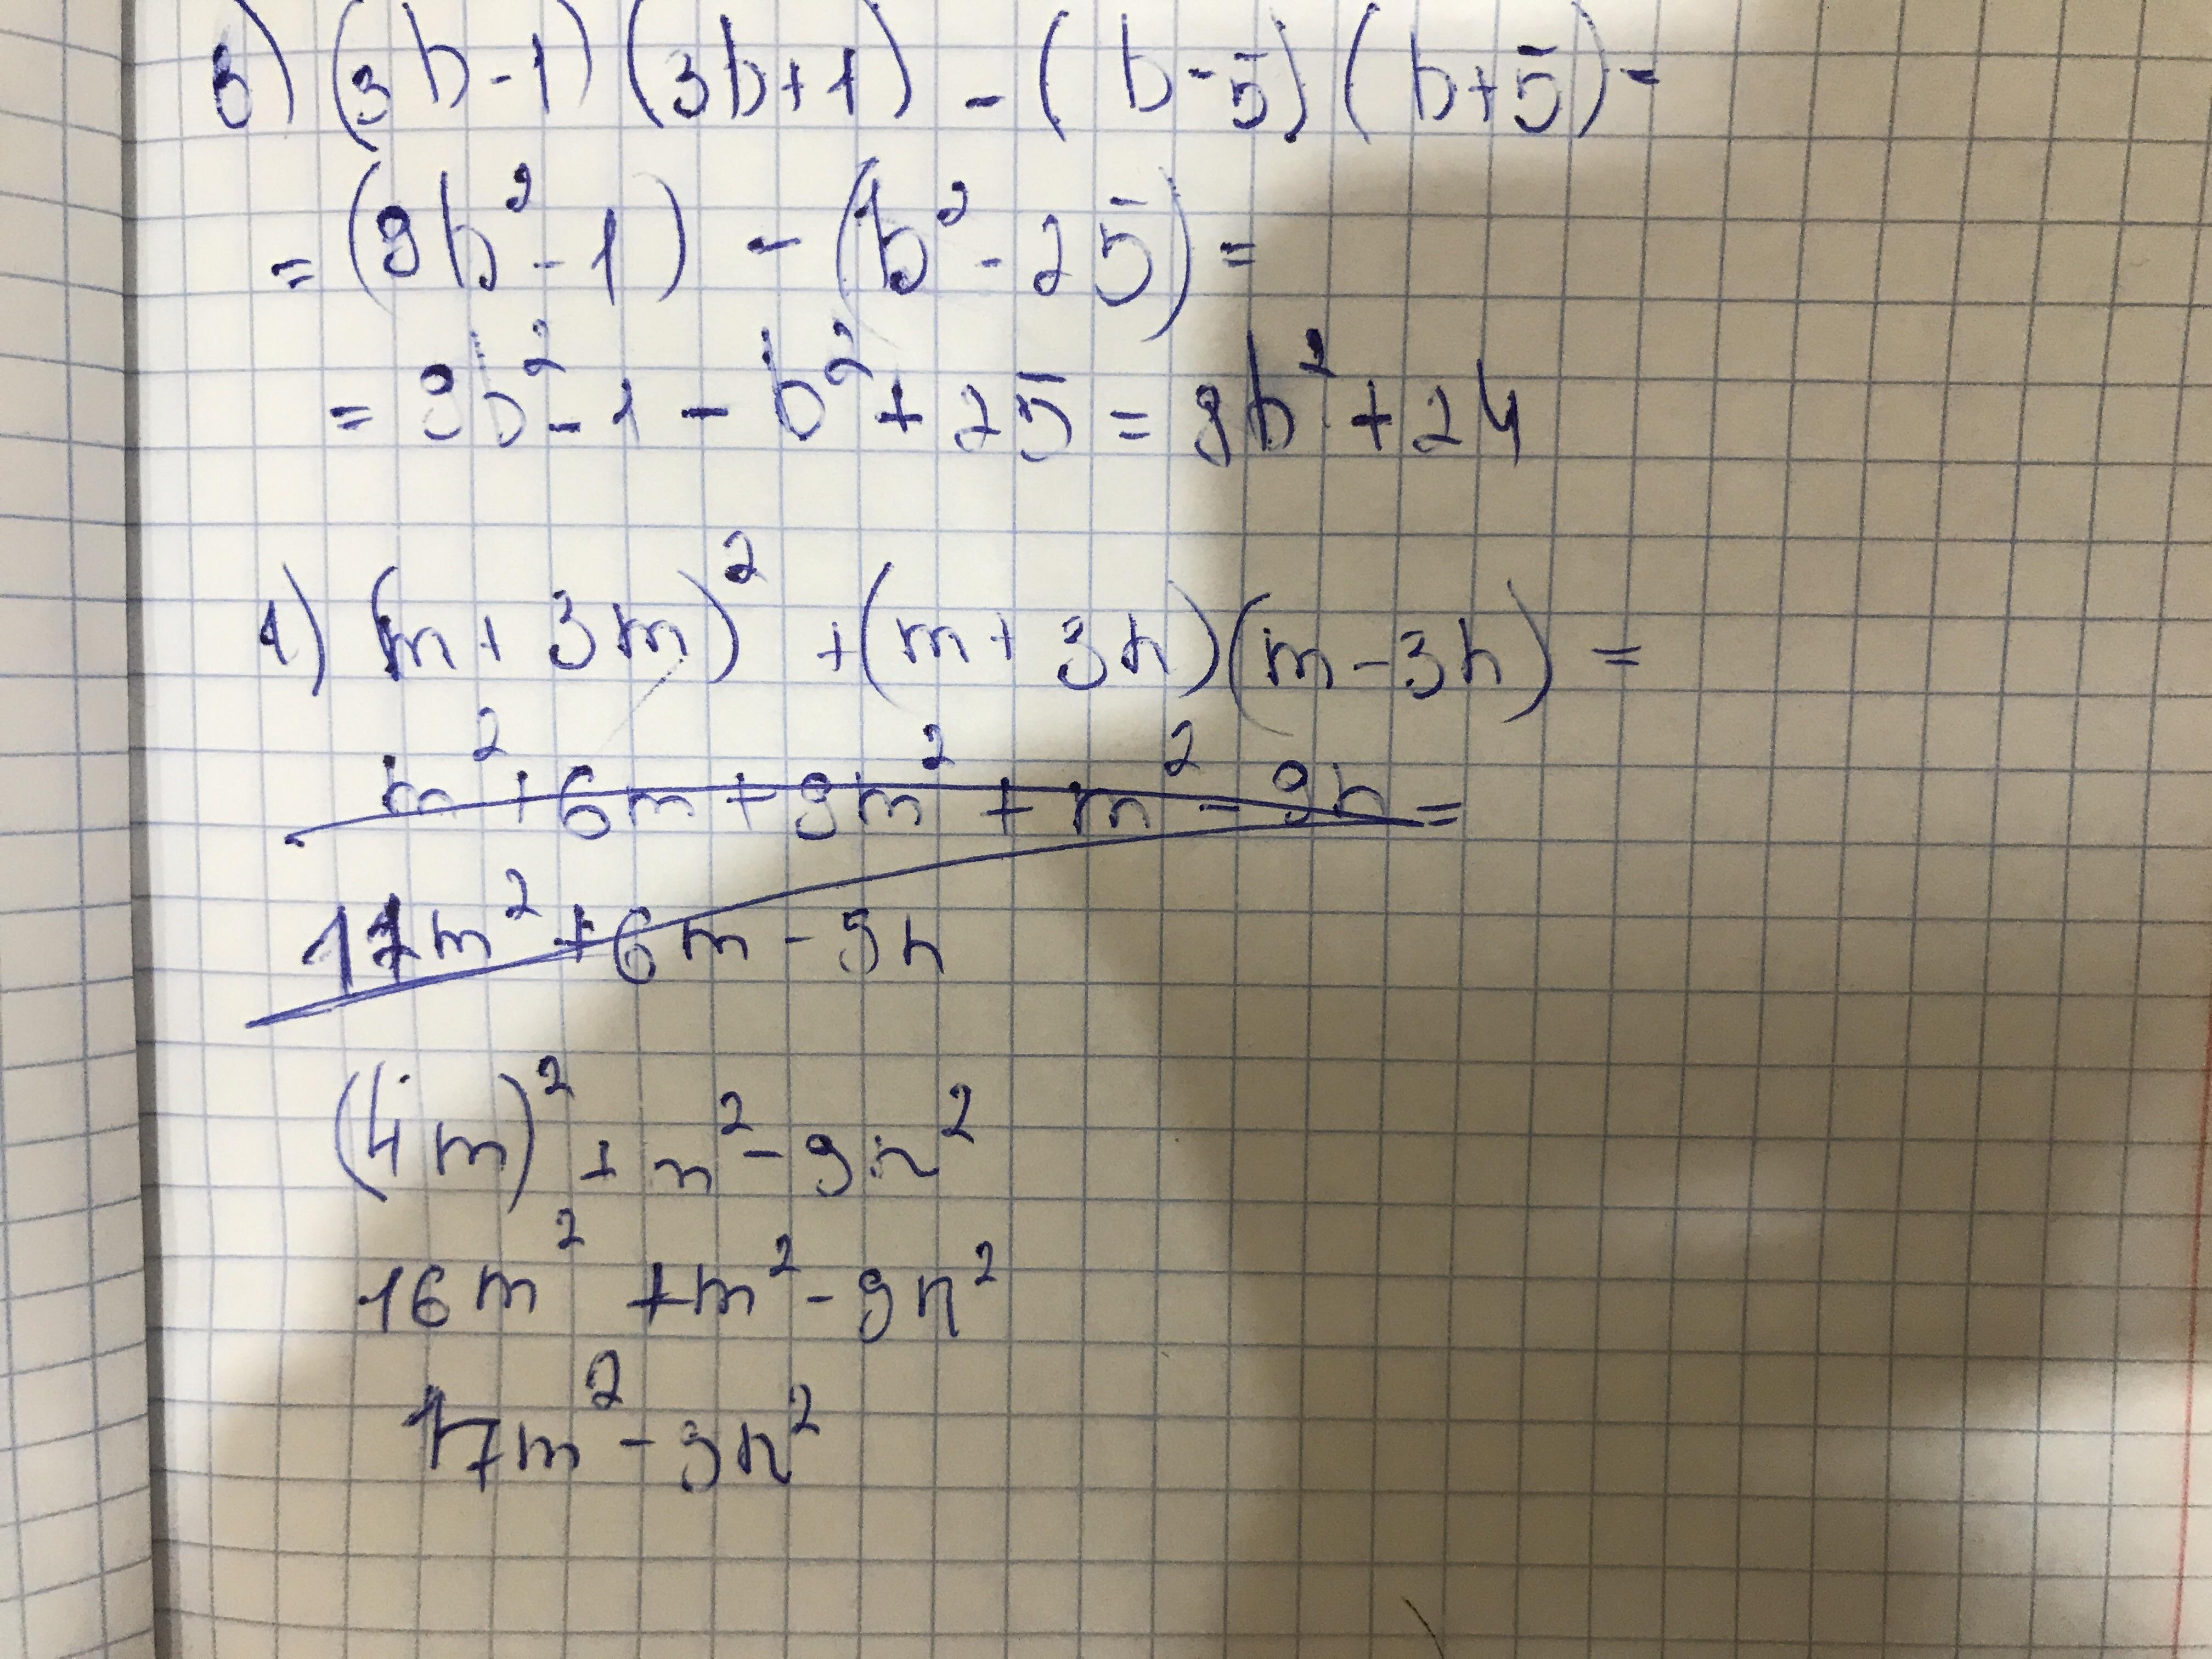 3) (3b-1)(3b+1) - (b-5)(b+5) -
= (9b² - 1) - (b² - 25) =
= 9b² - 1 - b² + 25 = 9b² + 24
1) (m + 3m)² + (m + 3n)(m - 3n) =
m² + 6m + 9m² + m² - 9n =
11m² + 6m - 9n
(4m)² + m² - 9n²
16m² + m² - 9n²
17m² - 9n²